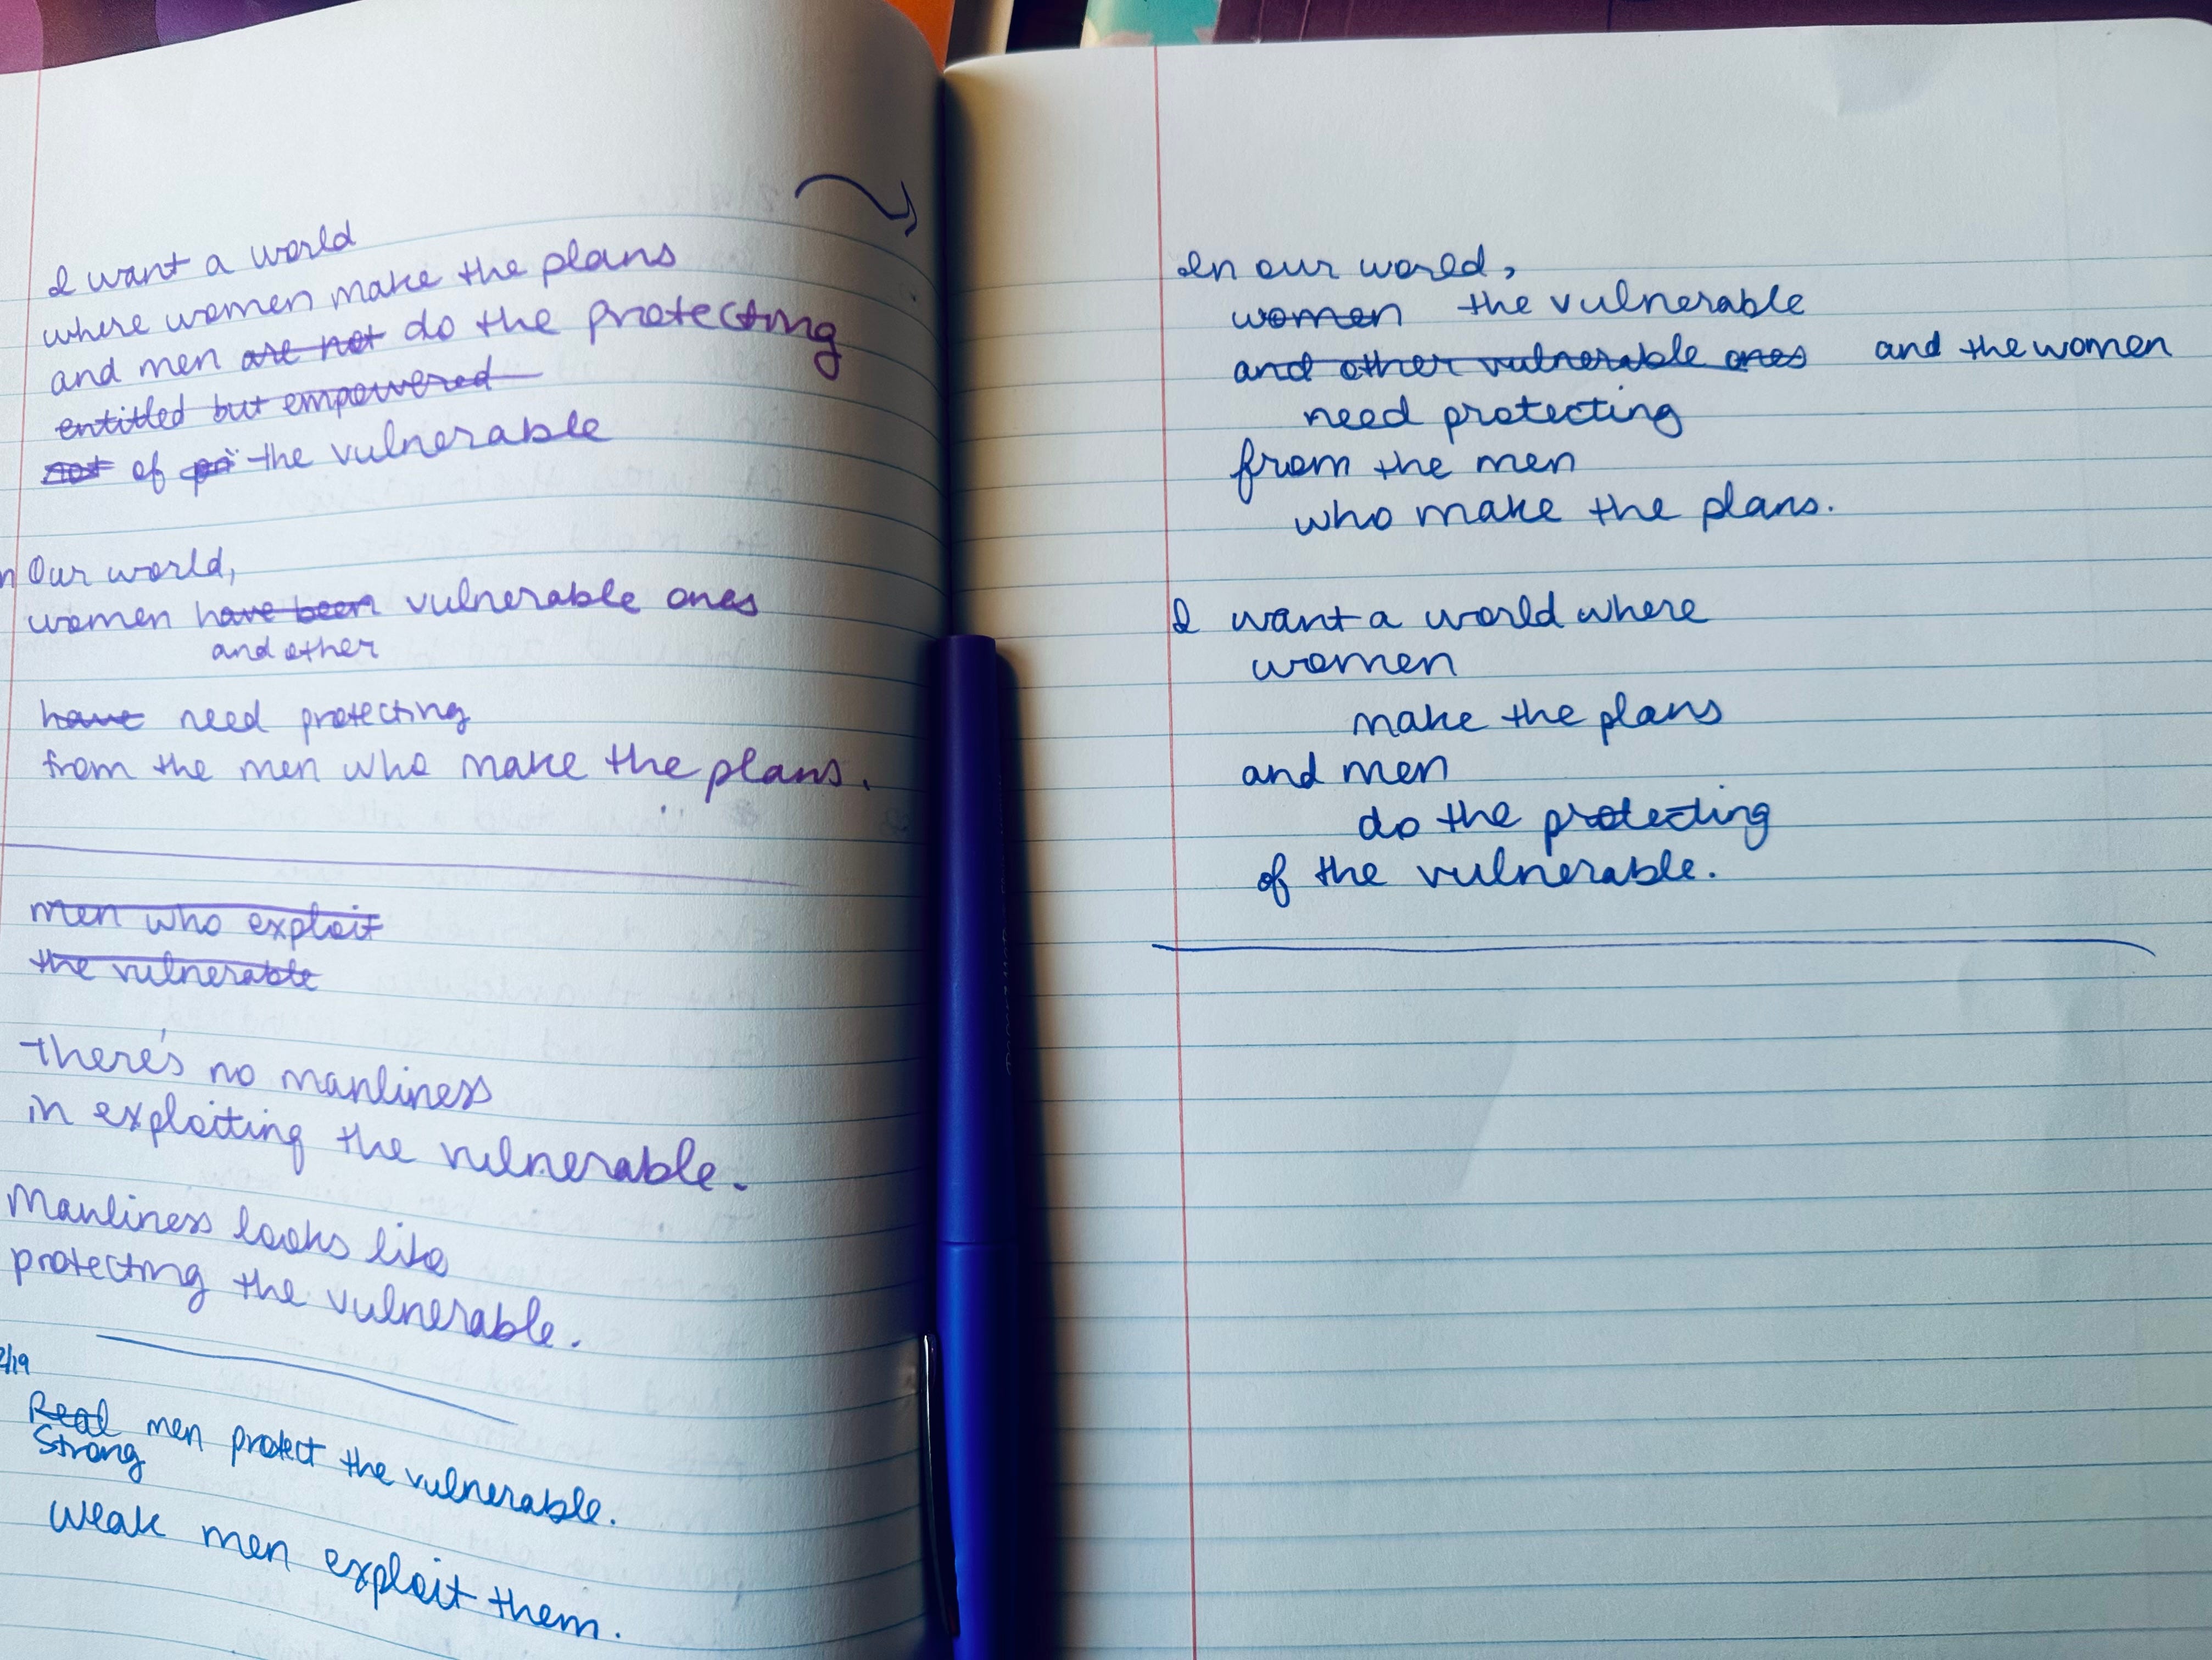 I want a world
where women make the plans
and men are not do the protecting
entitled but empowered
not of the vulnerable
n Our world,
women have been vulnerable ones
and other
have need protecting
from the men who make the plans.
men who exploit
the vulnerable
There's no manliness
in exploiting the vulnerable.
Manliness looks like
protecting the vulnerable.
2/19
Real men protect the vulnerable.
Strong
Weak men exploit them.
In our world,
women the vulnerable
and other vulnerable ones and the women
need protecting
from the men
who make the plans.
I want a world where
women
make the plans
and men
do the protecting
of the vulnerable.